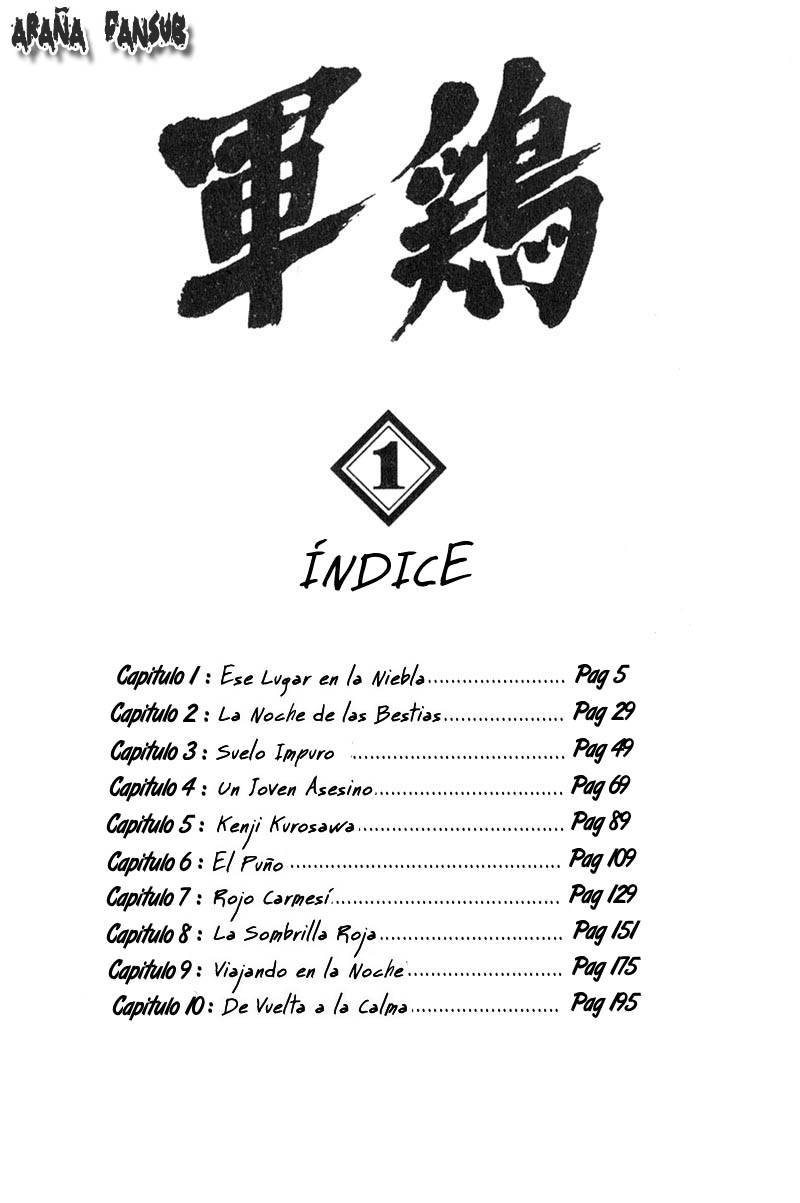 ARAÑA FANSUB
軍鶏
1
ÍNDICE
Capitulo 1 : Ese Lugar en la Niebla........................ Pag 5
Capitulo 2 : La Noche de las Bestias..................... Pag 29
Capitulo 3 : Suelo Impuro ..................................... Pag 49
Capitulo 4 : Un Joven Asesino................................ Pag 69
Capitulo 5 : Kenji Kurosawa................................... Pag 89
Capitulo 6 : El Puño .............................................. Pag 109
Capitulo 7 : Rojo Carmesí....................................... Pag 129
Capitulo 8 : La Sombrilla Roja................................ Pag 151
Capitulo 9 : Viajando en la Noche........................... Pag 175
Capitulo 10 : De Vuelta a la Calma......................... Pag 195